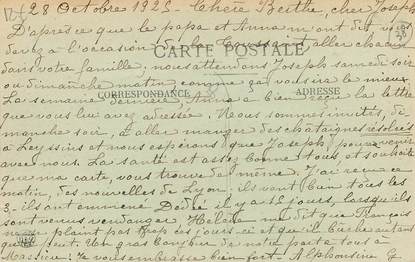 28 Octobre 1925 - Chère Berthe, cher Joseph
D'après ce que le papa et Anna m'ont dit vous
devez à l'occasion de la aller chacun
CARTE POSTALE
dans votre famille. nous attendons Joseph samedi soir
ou dimanche matin comme ça voudra le mieux.
CORRESPONDANCE ADRESSE
La semaine dernière, Anna a bien reçu la lettre
que vous lui avez adressée. Nous sommes invités, di-
manche soir, à aller manger des chataignes
à Leyssins et nous espérons que Joseph pourra venir
avec nous. La santé est assez bonne à tous et souhaite
que ma carte, vous trouve de même. J'ai reçu ce
matin, des nouvelles de Lyon, ils vont bien tous les
3. ils ont emmené Dédé il y a jours, lorsqu'ils
sont venus vendanger. Hélène me dit que François
ne plaint pas trop ces jours-ci et qu'il biche autant
que peut. Un gros bonjour de notre part à tous à
Messieu. Je vous embrasse bien fort. Alphonsine G